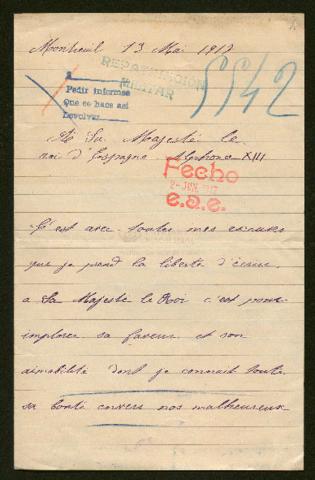 Montreuil 13 Mai 1917
REPATRIACION
MILITAR
5542
Pedir informes
Que se hace así
Devolver
A Sa Majesté le
roi d'Espagne Alphonse XIII
Fecho
2 - JUN. 1917
e.a.e.
C'est avec toutes mes excuses
que je prend la liberté d'écrire
a Sa Majesté le Roi c'est pour
implorer sa faveur et son
aimabilité dont je connait toute
sa bonté envers nos malheureux